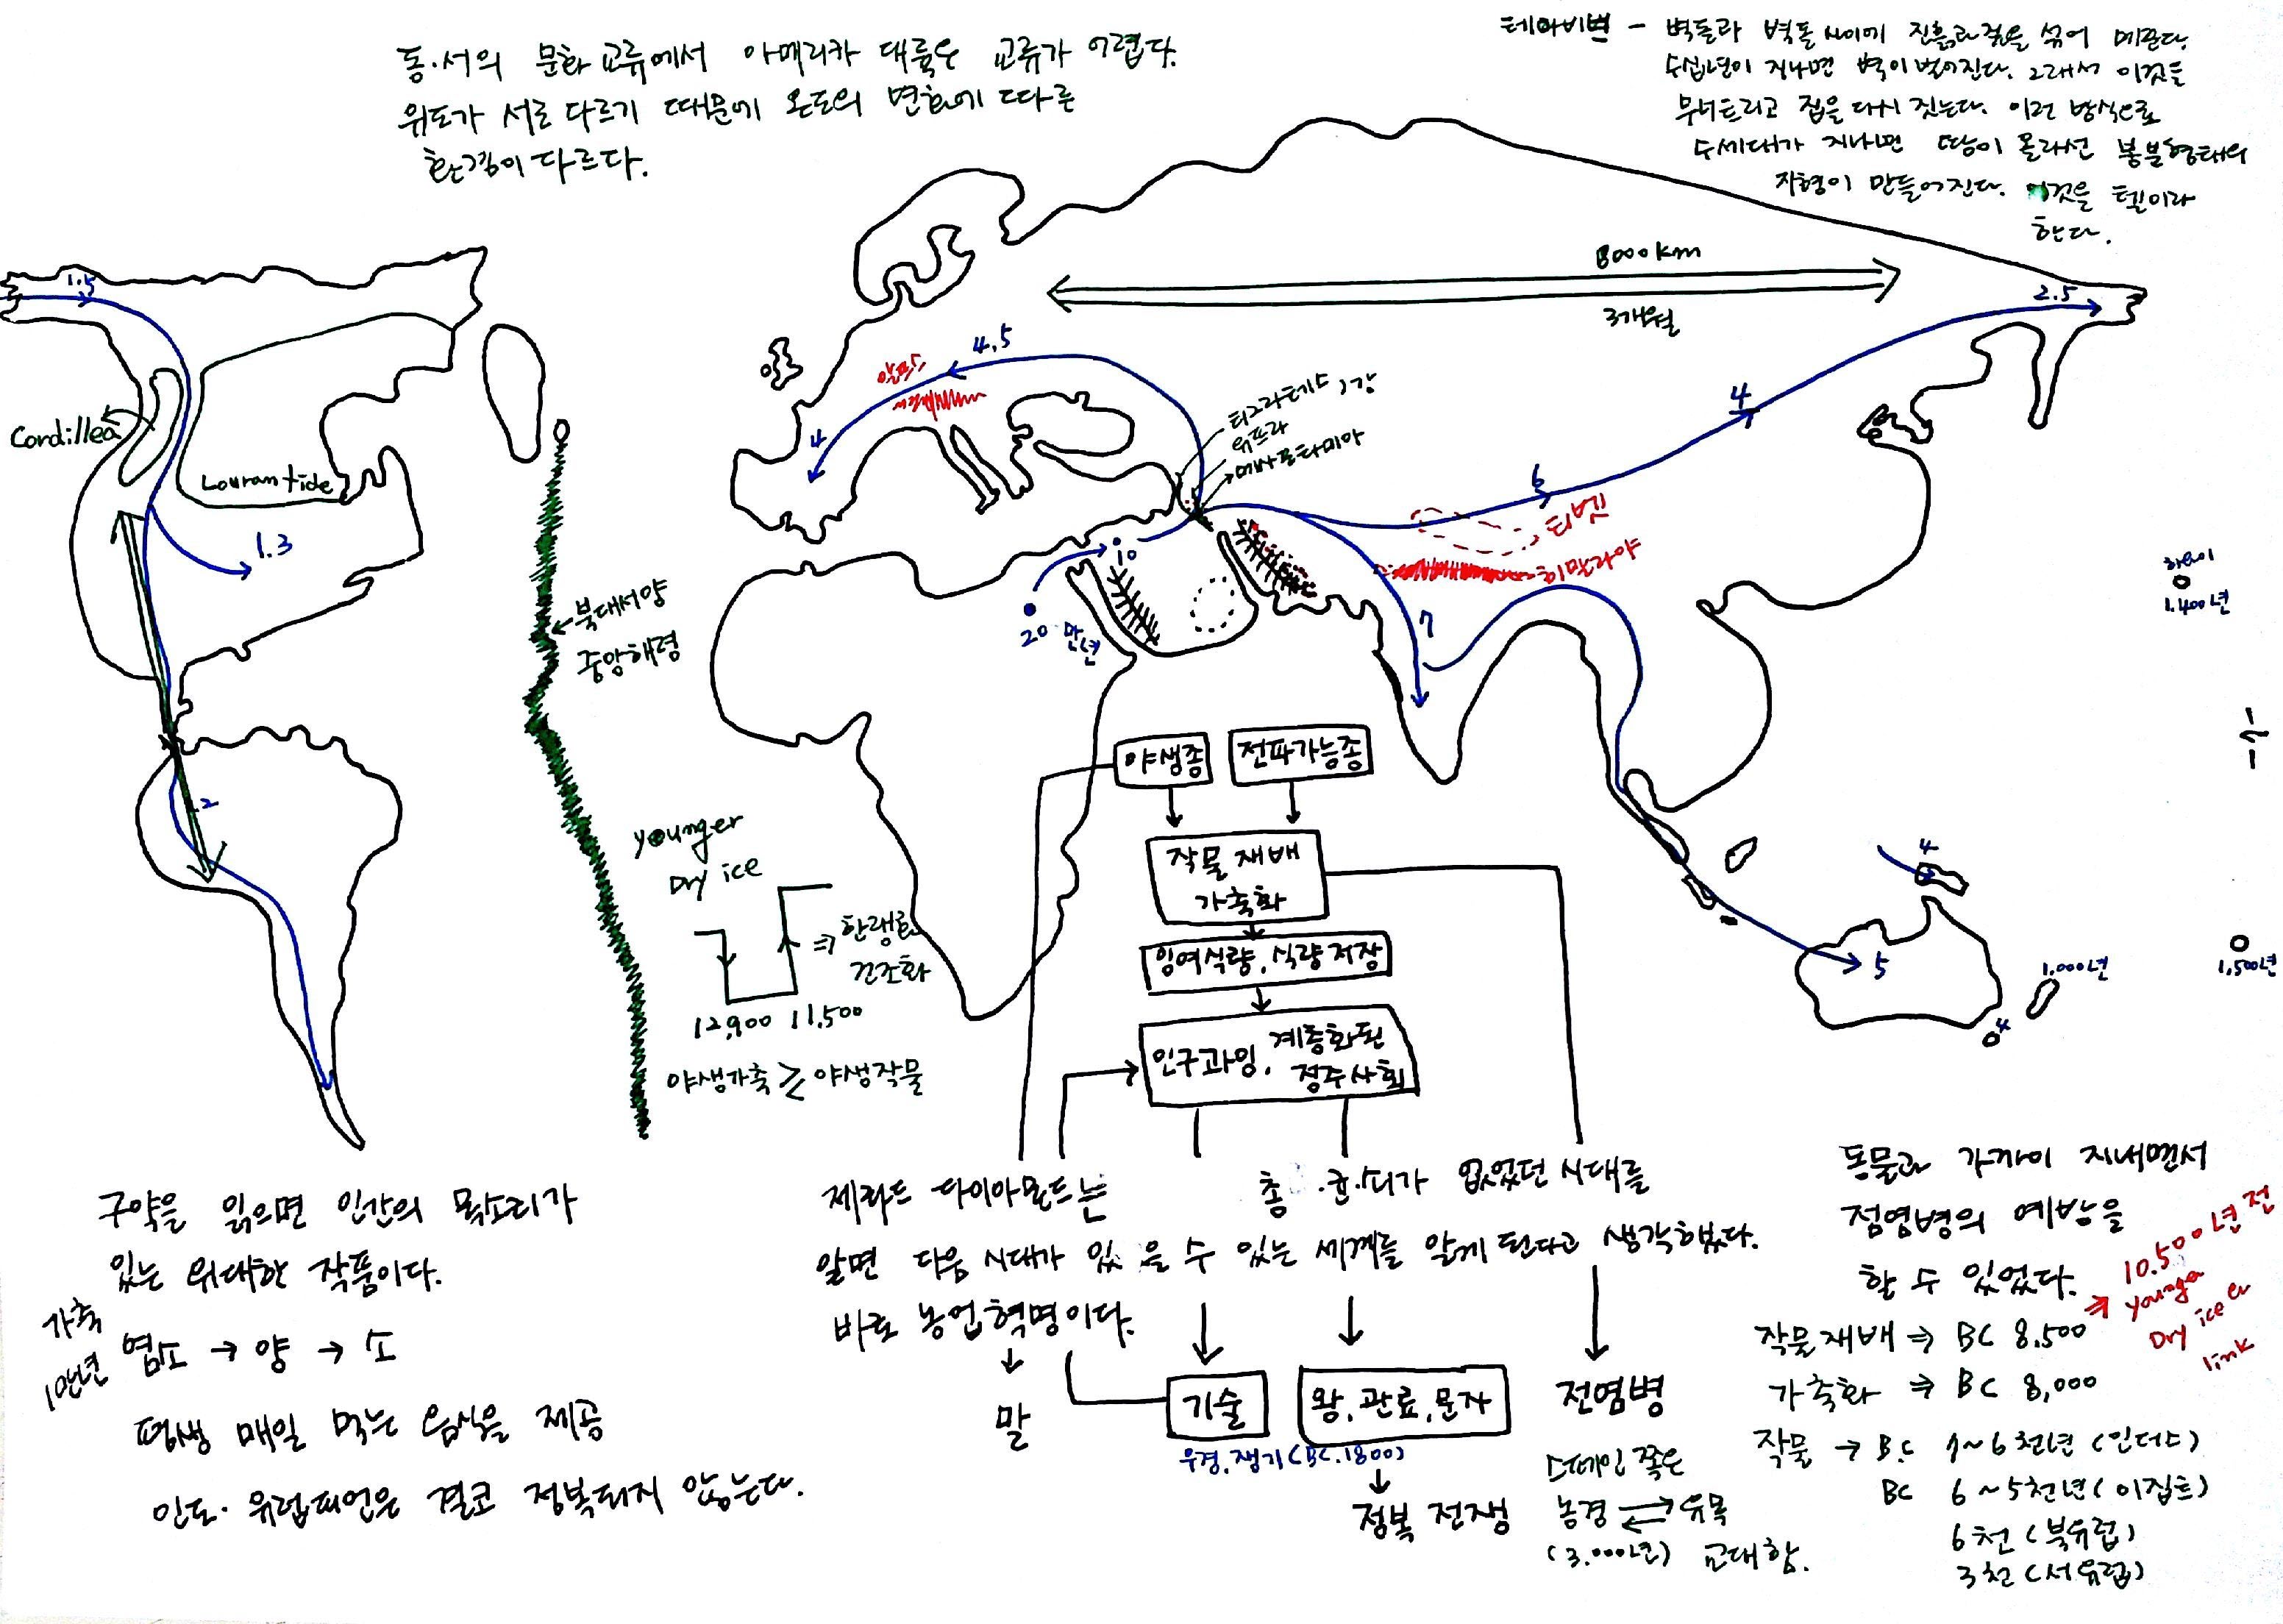 동·서의 문화교류에서 아메리카 대륙은 교류가 어렵다.
위도가 서로 다르기 때문에 온도의 변화에 따른
환경이 다르다.
벽돌과 벽돌 사이에 진흙과 짚을 섞어 메꾼다
수십년이 지나면 벽이 벌어진다. 그래서 이것을
무너트리고 집을 다시 짓는다. 이런 방식으로
수세대가 지나면 땅이 몰라선 봉분형태의
지형이 만들어진다. 이것을 텔이라
한다.
8000km
3개월
1.5
2.5
4.5
알프스
4
4
6
Cordillea
Lourantide
1.3
티그라테스, 강
유프라
메사포타미아
티벳
히말라야
10
20만년
7
북대서양
중앙해령
하와이
1.400년
2
야생종
전파가능종
작물재배
가축화
잉여식량, 식량저장
인구과잉, 계층화된
정주사회
younger
Dry ice
⇒ 한랭화
건조화
12,900 11,500
야생가축 ≥ 야생작물
4
5
1.000년
1,500년
4
구약을 읽으면 인간의 목소리가
있는 위대한 작품이다.
가축
10만년
염소 → 양 → 소
평생 매일 먹는 음식을 제공
인도·유럽피언은 결코 정복되지 않는다.
제라드 다이아몬드는 총·균·쇠가 없었던 시대를
알면 다음 시대가 있을 수 있는 세계를 알게 된다고 생각해봤다.
바로 농업혁명이다.
말
기술
왕, 관료, 문자
전염병
우경, 쟁기(BC.1800)
정복 전쟁
스페인 쪽은
농경 유목
(3.000년) 교대함.
동물과 가까이 지내면서
점염병의 예방을
할 수 있었다.
⇒ 10.500년전
younga
Dry ice er
link
작물재배 ⇒ BC 8,500
가축화 ⇒ BC 8,000
작물 → B.C 7~6천년(인더스)
BC 6~5천년(이집트)
6천(북유럽)
3천(서유럽)